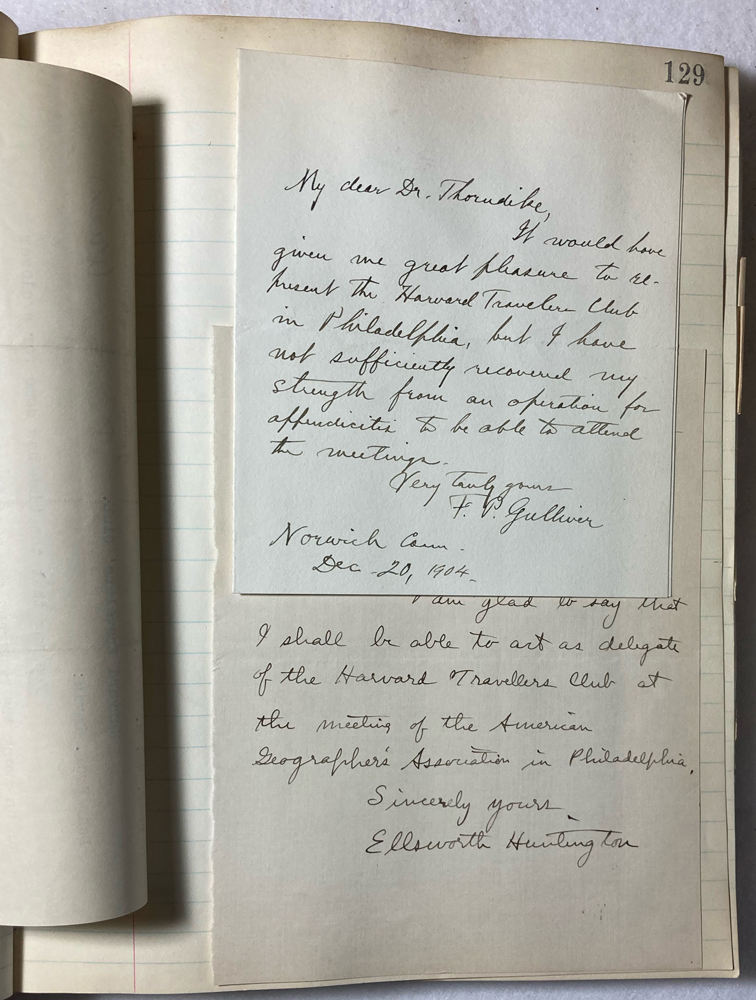 129
My dear Dr. Thorndike,
It would have
given me great pleasure to re-
present the Harvard Travelers Club
in Philadelphia, but I have
not sufficiently recovered my
strength from an operation for
appendicitis to be able to attend
the meetings.
Very truly yours
F. P. Gulliver
Norwich Conn.
Dec. 20, 1904.
I am glad to say that
I shall be able to act as delegate
of the Harvard Travellers Club at
the meeting of the American
Geographer's Association in Philadelphia.
Sincerely yours
Ellsworth Huntington